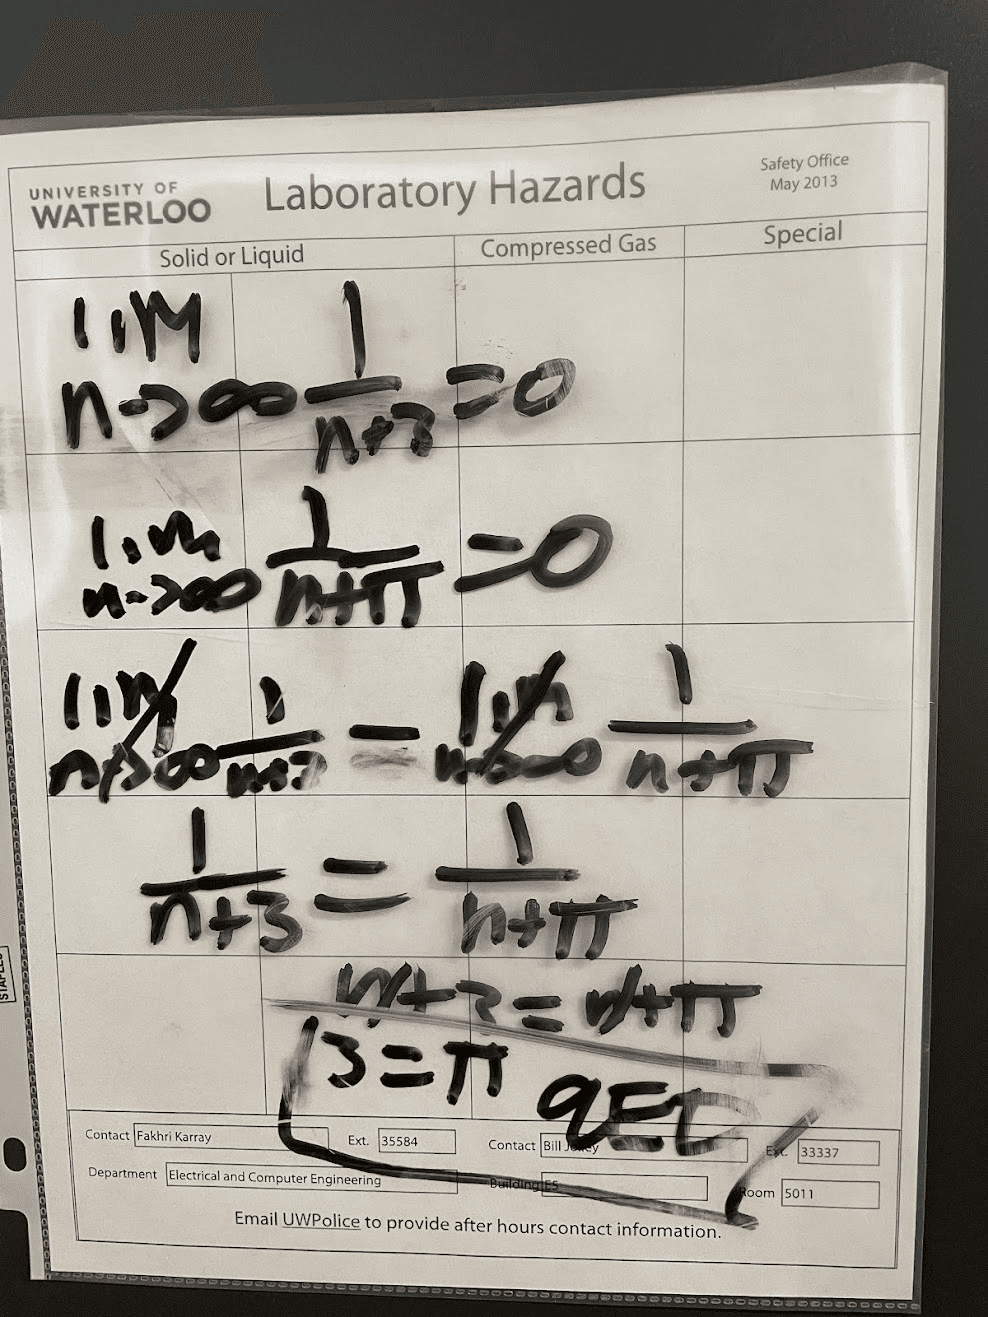 UNIVERSITY OF
WATERLOO
Laboratory Hazards
Safety Office
May 2013
Solid or Liquid
Compressed Gas
Special
lim 1
n->∞ n+3 =0
lim 1
n->∞ n+π =0
lim 1 = lim 1
n->∞ n+3 n->∞ n+π
1 = 1
n+3 n+π
n+3=n+π
3=π QED
Contact Fakhri Karray Ext. 35584 Contact Bill Ext. 33337
Department Electrical and Computer Engineering Building E5 Room 5011
Email UWPolice to provide after hours contact information.
STAPLES